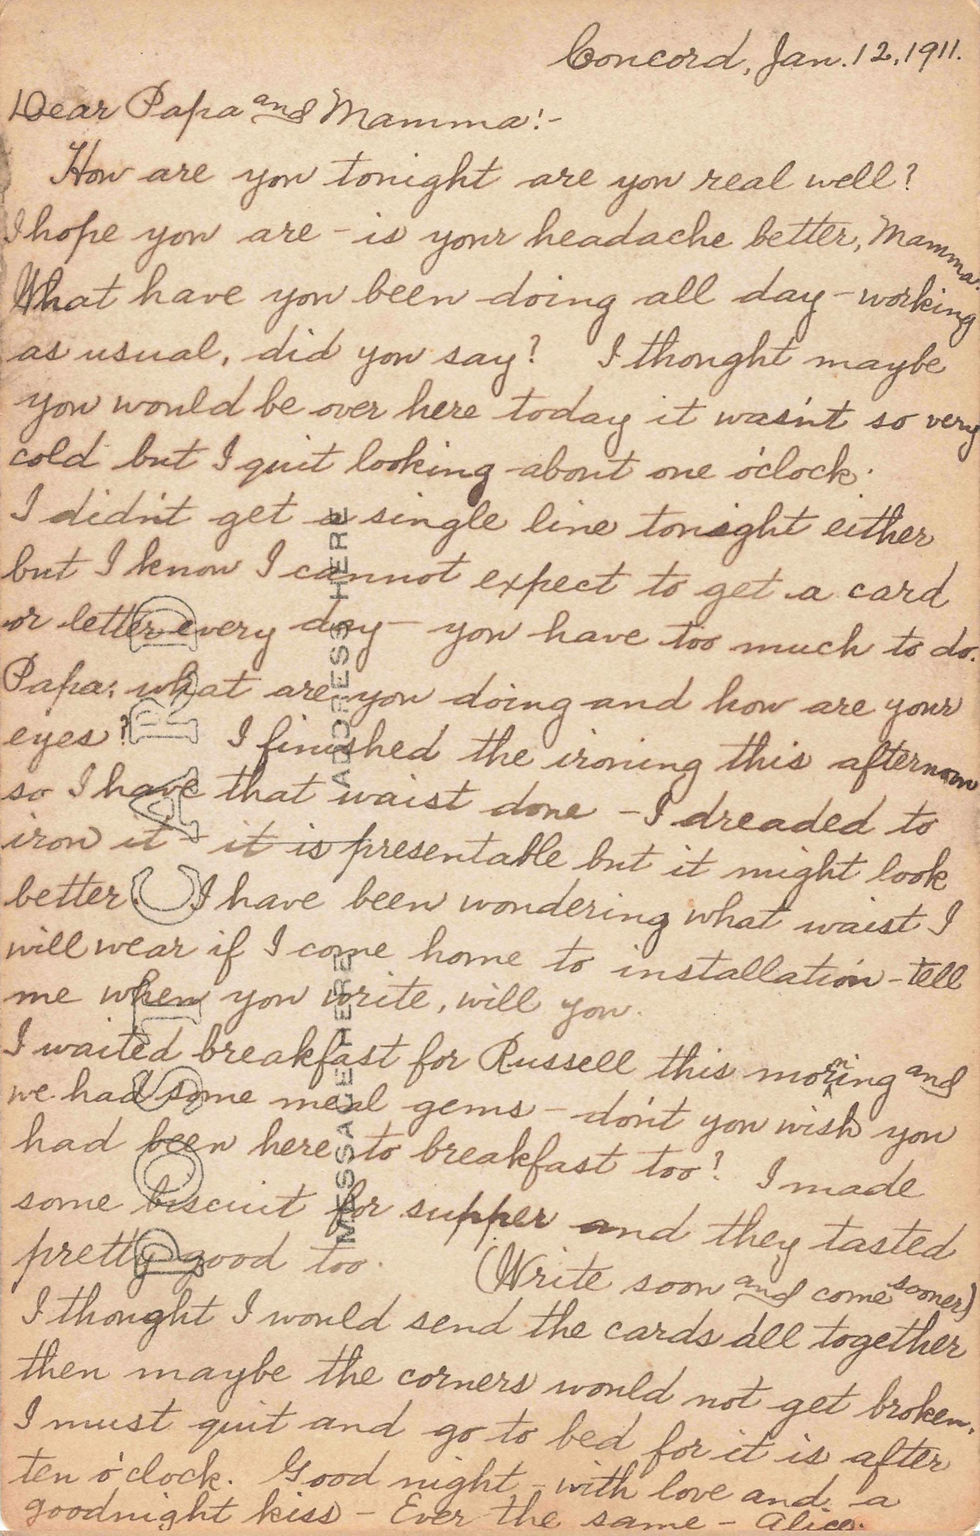 Concord, Jan. 12, 1911.
Dear Papa and Mamma:-
How are you tonight are you real well?
I hope you are - is your headache better, Mamma.
What have you been doing all day - working
as usual, did you say? I thought maybe
you would be over here today it wasn't so very
cold but I quit looking about one o'clock.
I didn't get a single line tonight either
but I know I cannot expect to get a card
or letter every day - you have too much to do.
Papa: what are you doing and how are your
eyes? I finished the ironing this afternoon
so I have that waist done - I dreaded to
iron it - it is presentable but it might look
better. I have been wondering what waist I
will wear if I come home to installation - tell
me when you write, will you.
I waited breakfast for Russell this morning and
we had some meal gems - don't you wish you
had been here to breakfast too? I made
some biscuit for supper and they tasted
pretty good too. (Write soon and come sooner)
I thought I would send the cards all together
then maybe the corners would not get broken.
I must quit and go to bed for it is after
ten o'clock. Good night - with love and a
goodnight kiss - Ever the same - Alice.
POST CARD
MESSAGE HERE
ADDRESS HERE